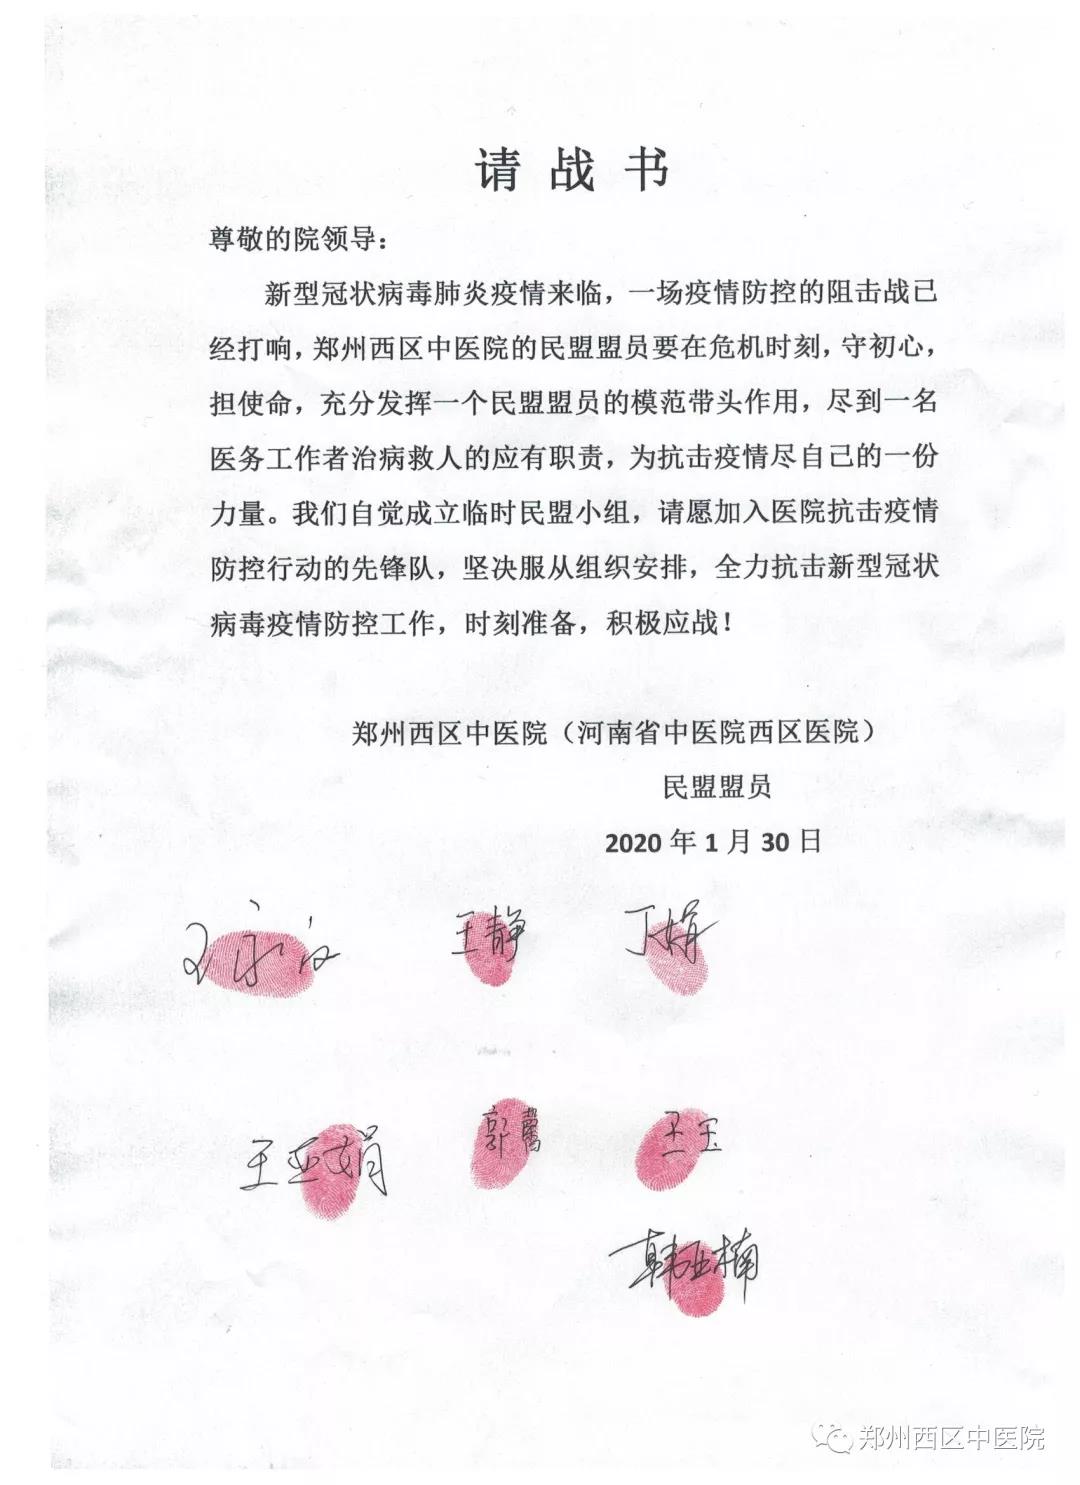 请战书
尊敬的院领导：
新型冠状病毒肺炎疫情来临，一场疫情防控的阻击战已
经打响，郑州西区中医院的民盟盟员要在危机时刻，守初心，
担使命，充分发挥一个民盟盟员的模范带头作用，尽到一名
医务工作者治病救人的应有职责，为抗击疫情尽自己的一份
力量。我们自觉成立临时民盟小组，请愿加入医院抗击疫情
防控行动的先锋队，坚决服从组织安排，全力抗击新型冠状
病毒疫情防控工作，时刻准备，积极应战！
郑州西区中医院（河南省中医院西区医院）
民盟盟员
2020年1月30日
王静 丁娟
王亚娟 郭 王玉
韩亚楠
郑州西区中医院